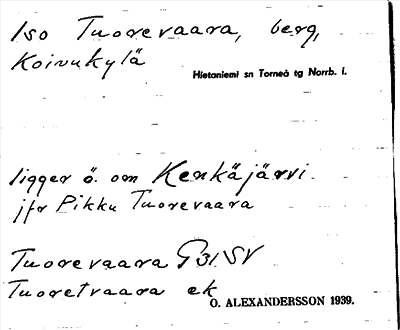 Iso Tuorevaara, berg,
Koivukylä
Hietaniemi sn Torneå tg Norrb. l.
ligger ö. om Kenkäjärvi.
jfr Pikku Tuorevaara
Tuorevaara G31SV
Tuoretvaara ek
O. ALEXANDERSSON 1939.